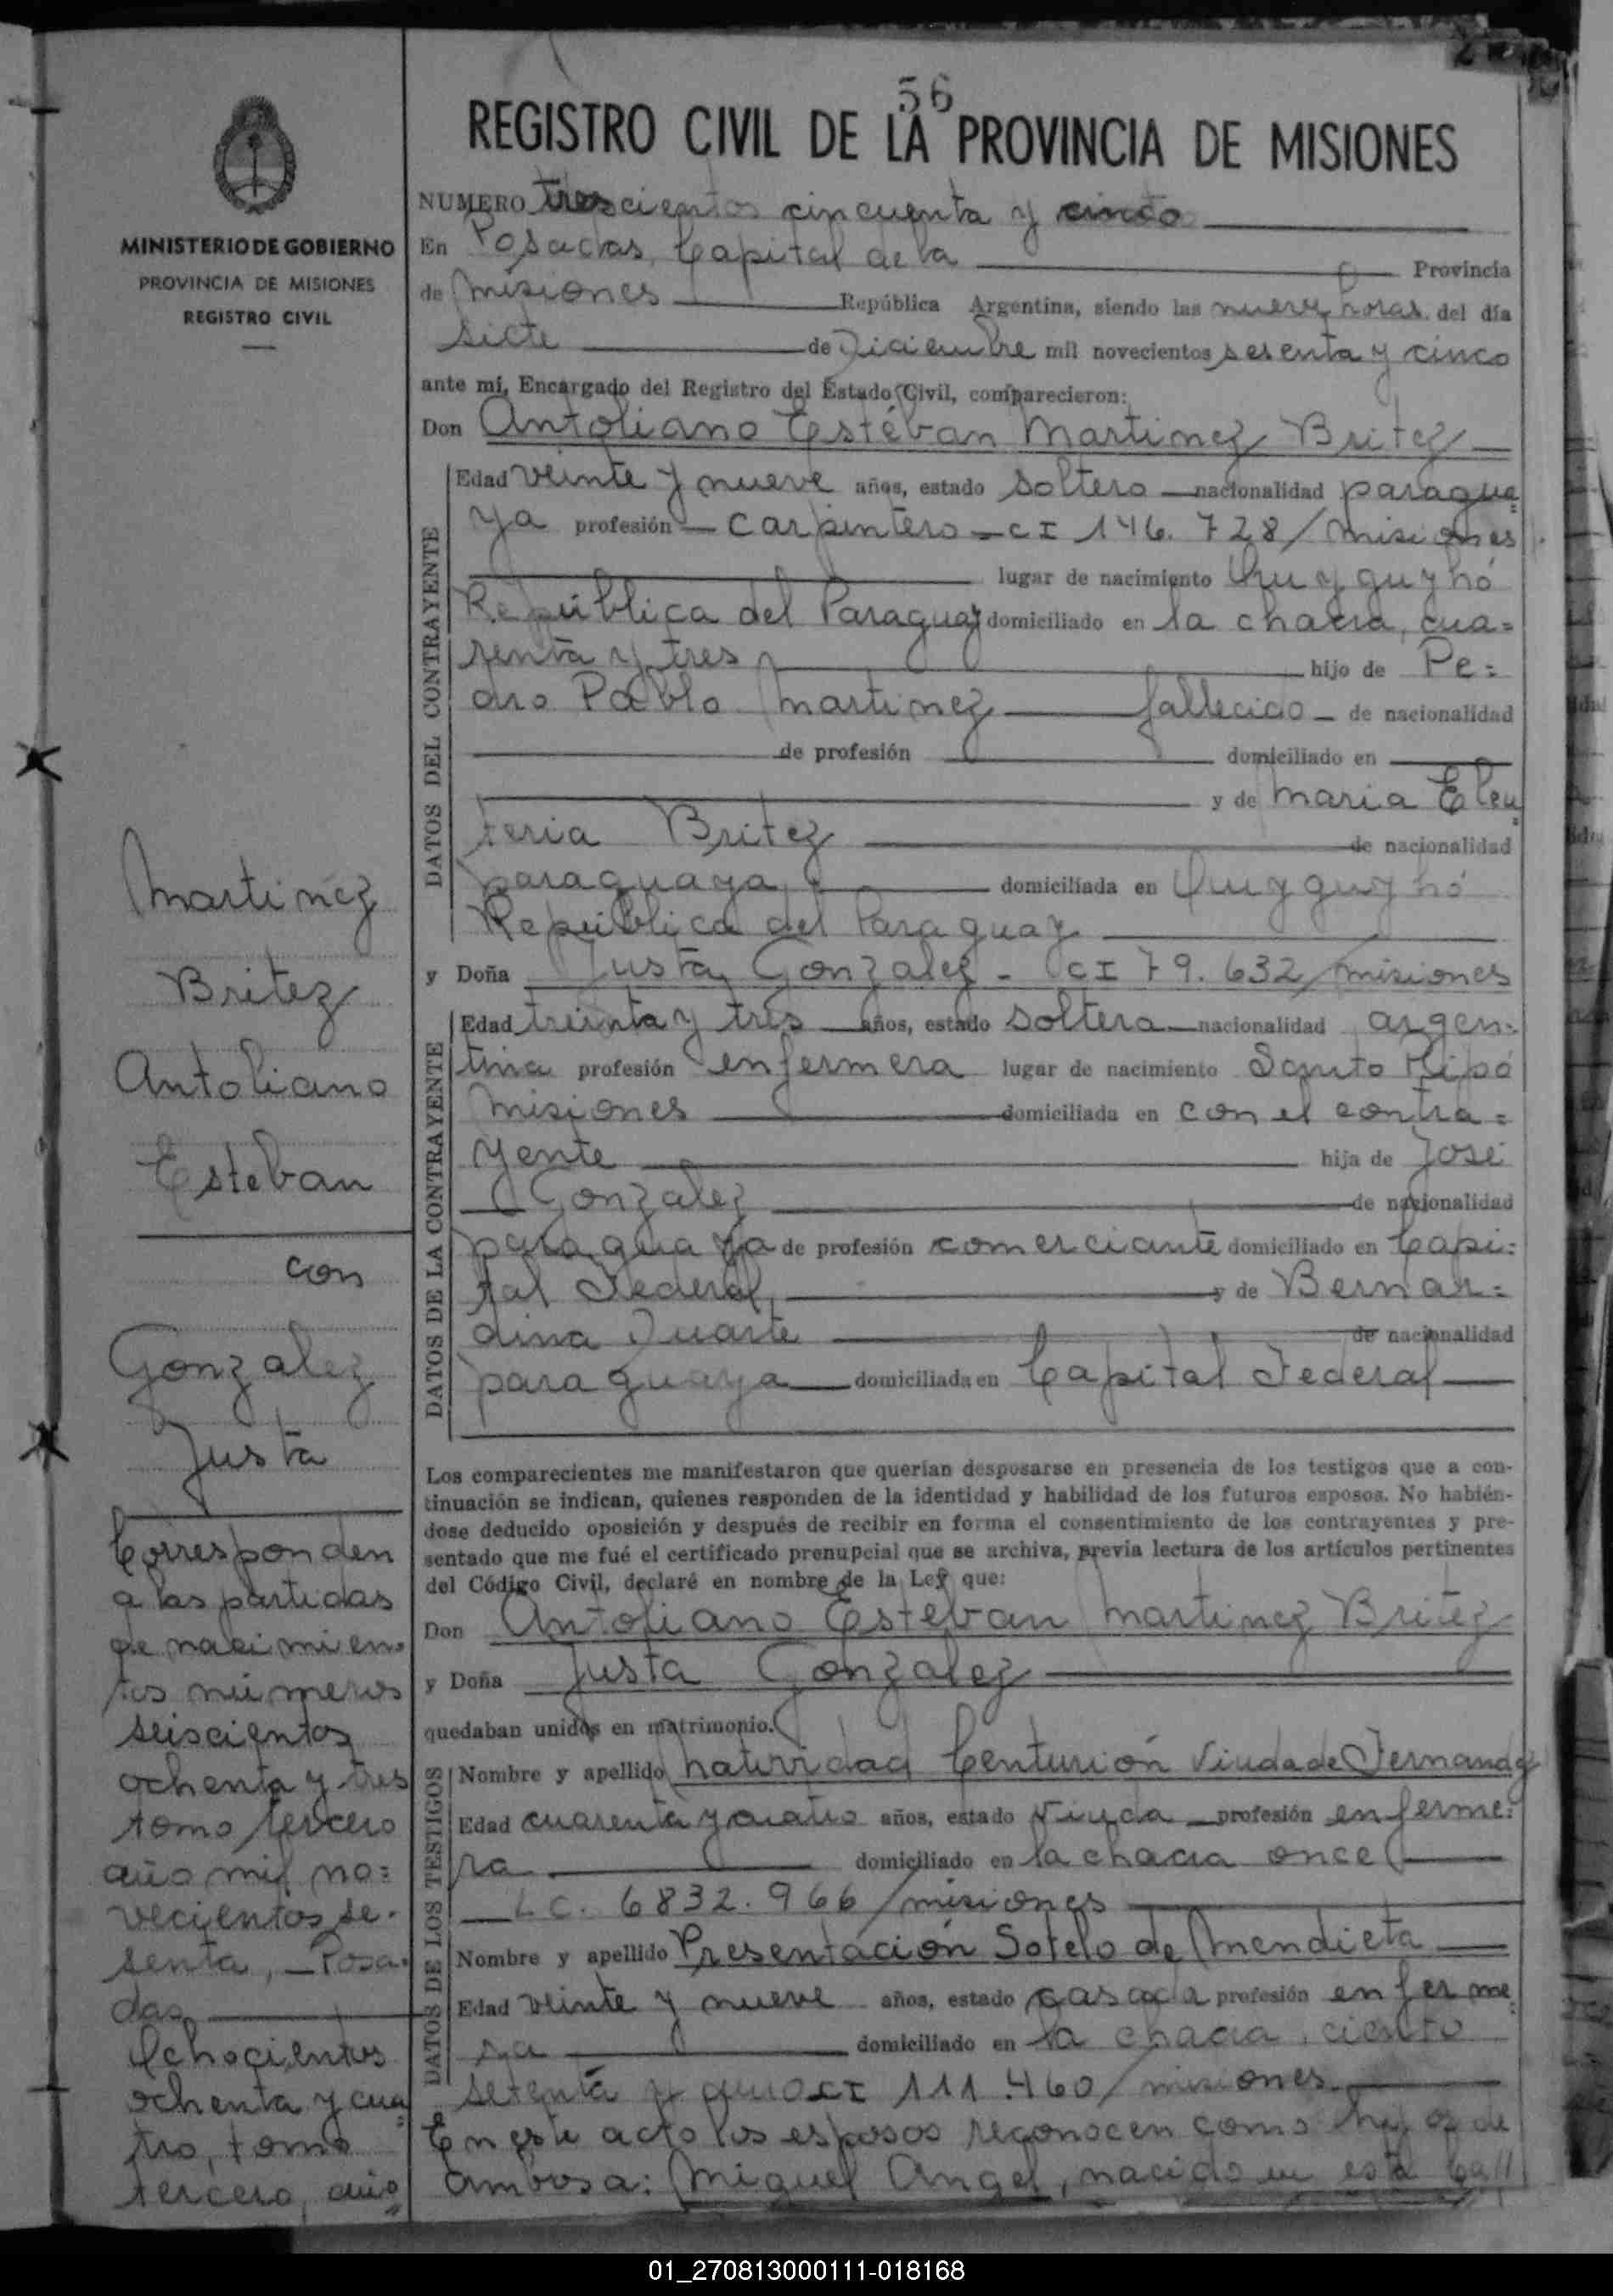 56
REGISTRO CIVIL DE LA PROVINCIA DE MISIONES
MINISTERIO DE GOBIERNO
PROVINCIA DE MISIONES
REGISTRO CIVIL
NUMERO trescientos cincuenta y cinco
En Posadas, Capital de la Provincia
de Misiones República Argentina, siendo las nueve horas del día
siete de Diciembre mil novecientos sesenta y cinco
ante mí, Encargado del Registro del Estado Civil, comparecieron:
Don Antoliano Estéban Martinez Britez
DATOS DEL CONTRAYENTE
Edad veinte y nueve años, estado soltero nacionalidad paragua=
ya profesión - carpintero - CI 146.728/misiones
lugar de nacimiento Quyquyhó
República del Paraguay domiciliado en la chacra, cua=
renta y tres hijo de Pe=
dro Pablo Martinez fallecido - de nacionalidad
de profesión domiciliado en
y de Maria Eleu=
teria Britez de nacionalidad
paraguaya domiciliada en Quyquyhó
República del Paraguay
y Doña Justa Gonzalez - CI 79.632/misiones
DATOS DE LA CONTRAYENTE
Edad treinta y tres años, estado soltera nacionalidad argen=
tina profesión enfermera lugar de nacimiento Santo Pipó
Misiones domiciliada en con el contra=
yente hija de José
Gonzalez de nacionalidad
paraguaya de profesión comerciante domiciliado en Capi=
tal Federal, y de Bernar=
dina Duarte de nacionalidad
paraguaya domiciliada en Capital Federal
Los comparecientes me manifestaron que querían desposarse en presencia de los testigos que a con-
tinuación se indican, quienes responden de la identidad y habilidad de los futuros esposos. No habién-
dose deducido oposición y después de recibir en forma el consentimiento de los contrayentes y pre-
sentado que me fué el certificado prenupcial que se archiva, previa lectura de los artículos pertinentes
del Código Civil, declaré en nombre de la Ley que:
Don Antoliano Esteban Martinez Britez
y Doña Justa Gonzalez
quedaban unidos en matrimonio.
DATOS DE LOS TESTIGOS
Nombre y apellido Natividad Centurión Viuda de Fernandez
Edad cuarenta y cuatro años, estado viuda profesión enferme=
ra domiciliado en la chacra once
L.C. 6832.966/misiones
Nombre y apellido Presentación Sotelo de Mendieta
Edad veinte y nueve años, estado casada profesión enferme=
ra domiciliado en la chacra, ciento
setenta y CI 111.460/misiones.
En este acto los esposos reconocen como hijos de
ambos a: Miguel Angel, nacido en esta
Martinez
Britez
Antoliano
Esteban
con
Gonzalez
Justa
Corresponden
a las partidas
de nacimien=
tos números
seiscientos
ochenta y tres
tomo tercero
año mil no=
vecientos se=
senta, - Posa=
das,
Ochocientos
ochenta y cua=
tro, tomo
tercero, año
01_270813000111-018168